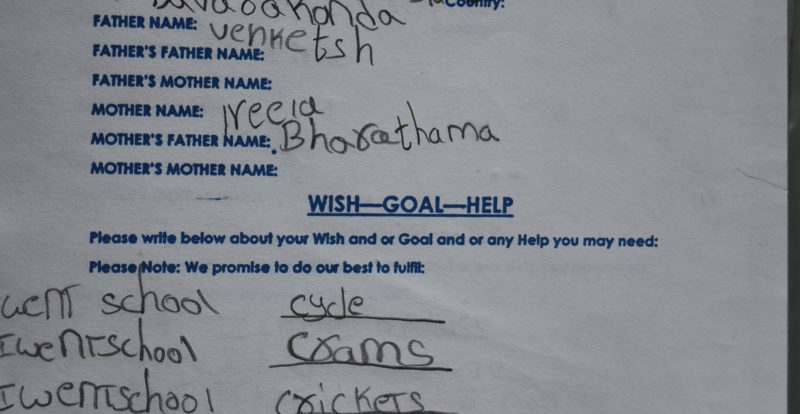 Country:
FATHER NAME: venketsh
FATHER'S FATHER NAME:
FATHER'S MOTHER NAME:
MOTHER NAME:
MOTHER'S FATHER NAME: Bharathama
MOTHER'S MOTHER NAME:
WISH—GOAL—HELP
Please write below about your Wish and or Goal and or any Help you may need:
Please Note: We promise to do our best to fulfil:
went school cycle
Iwentschool crams
Iwentschool crickets